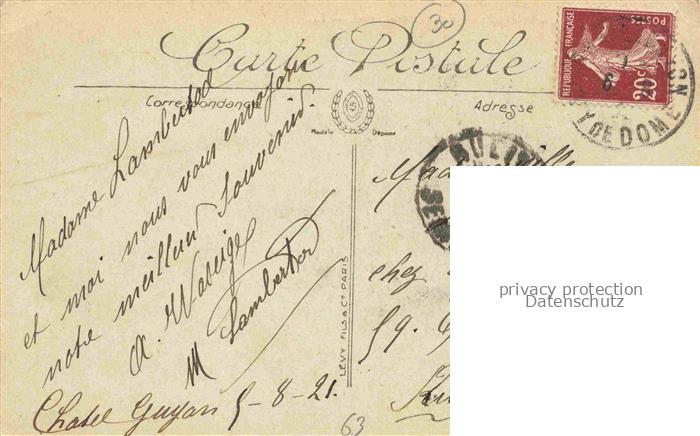 30
Carte Postale
Correspondance
Adresse
Modèle Déposé
REPUBLIQUE FRANÇAISE
POSTES
20c
Y DE DOME
Madame Lambertod
et moi nous vous envoyons
notre meilleur souvenir.
A.
M Lambertod
Chatel Guyon 5-8-21.
LEVY FILS & Cie PARIS
chez
59.
63
privacy protection
Datenschutz